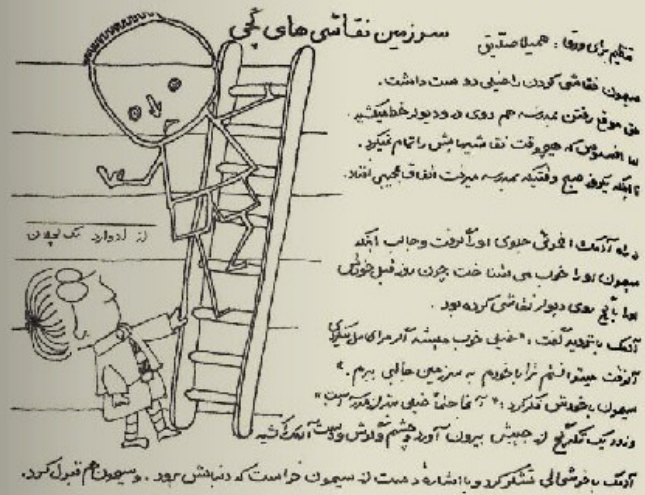 سرزمین نقاشی های گچی
تنظیم برای ورقا : همیلا صدیقی
سیمون نقاشی کردن را خیلی دوست داشت.
حتی موقع رفتن بمدرسه هم روی در و دیوار خط میکشید.
اما افسوس که هیچوقت نقاشیهایش را تمام نمیکرد.
تا اینکه یکروز صبح وقتیکه بمدرسه میرفت اتفاق عجیبی افتاد.
در راه آدمک اخموئی جلوی او را گرفت و جالب اینکه
سیمون او را خوب می شناخت چون روز قبل خودش
او را با گچ روی دیوار نقاشی کرده بود.
آدمک با تردید گفت : "خیلی خوب میشه اگر مرا کامل میکردی
آنوقت میتوانستم ترا با خودم به سرزمین جالبی ببرم."
سیمون با خودش فکر کرد : "آنجا حتماً خیلی
و زود یک تکه گچ از جیبش بیرون آورد و چشم و گوش و دست آدمک را کشید
آدمک با خوشحالی تشکر کرد و با اشاره دست از سیمون خواست که دنبالش برود. و سیمون هم قبول کرد.
از ادوارد مک لچلان